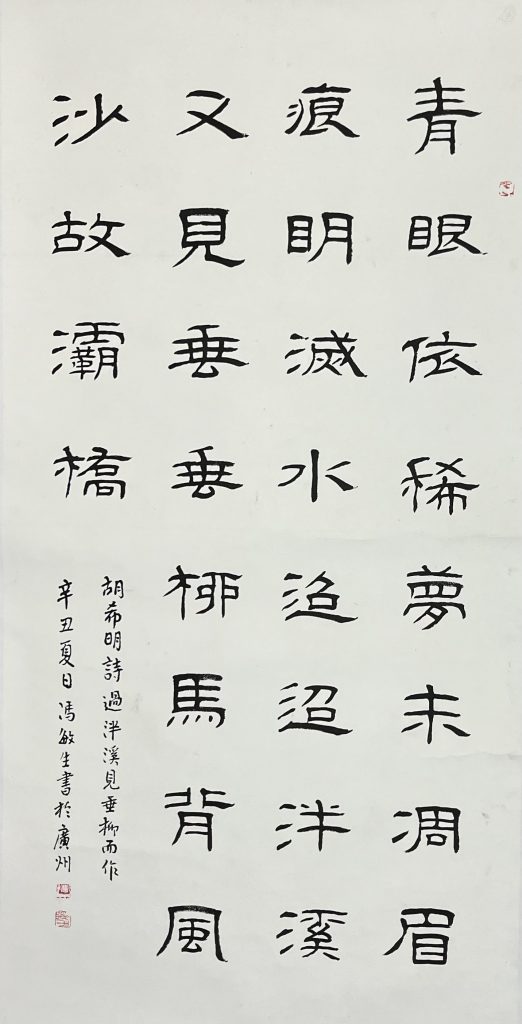 青眼依稀夢未凋眉
痕明滅水迢迢泮溪
又見垂垂柳馬背風
沙故灞橋
胡希明詩過泮溪見垂柳而作
辛丑夏日馮敏生書於廣州